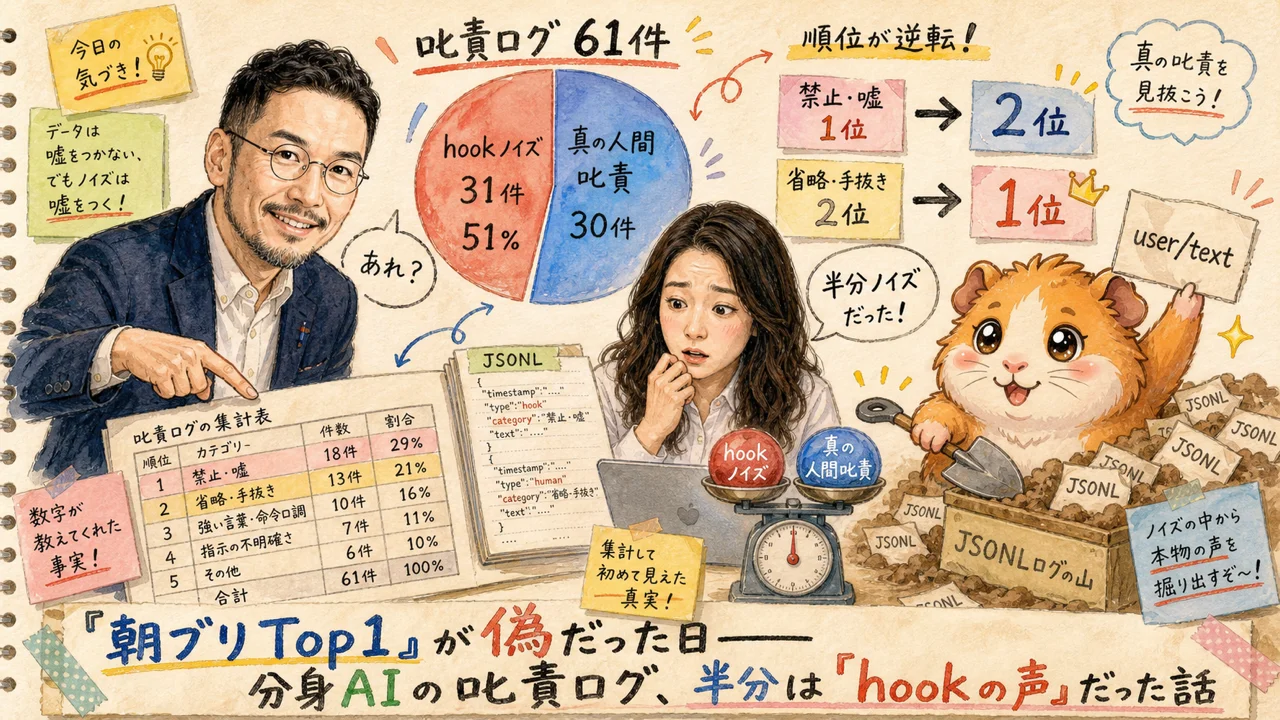 今日の
気づき！
データは
嘘をつかない、
でもノイズは
嘘をつく！
叱責ログ 61件
hookノイズ
31件
51%
真の人間
叱責
30件
順位が逆転！
禁止・嘘
1位
2位
省略・手抜き
2位
1位
真の叱責を
見抜こう！
あれ？
半分ノイズ
だった！
user/text
叱責ログの集計表
順位 カテゴリー 件数 割合
1 禁止・嘘 18件 29%
2 省略・手抜き 13件 21%
3 強い言葉・命令口調 10件 16%
4 指示の不明確さ 7件 11%
5 その他 6件 10%
合計 61件 100%
JSONL
{
"timestamp":"....."
"type":"hook"
"category":"禁止・嘘"
"text":"....."
}
{
"timestamp":"....."
"type":"human"
"category":"省略・手抜き"
"text":"....."
}
.....
hook
ノイズ
真の
人間叱責
JSONL
JSONL
JSONL
JSONL
JSONL
JSONL
JSONL
JSONL
JSONLログの山
数字が
教えてくれた
事実！
集計して
初めて見えた
真実！
ノイズの中から
本物の声を
掘り出すぞ〜！
『朝ブリTop1』が偽だった日――
分身AIの叱責ログ、半分は「hookの声」だった話